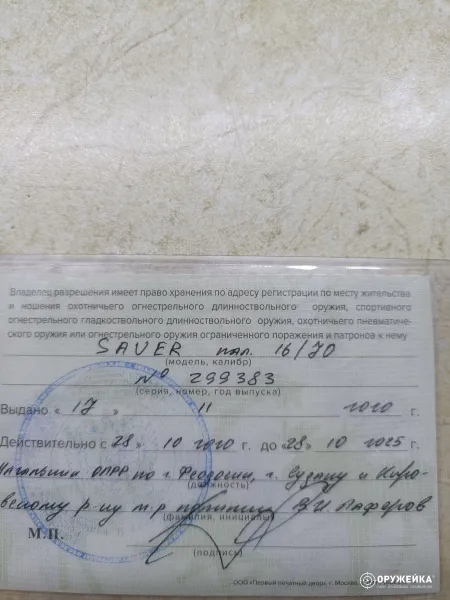 Владелец разрешения имеет право хранения по адресу регистрации по месту жительства
и ношения охотничьего огнестрельного длинноствольного оружия, спортивного
огнестрельного гладкоствольного длинноствольного оружия, охотничьего пневматиче-
ского оружия или огнестрельного оружия ограниченного поражения и патронов к нему
SAUER кал. 16/70
(модель, калибр)
№ 299383
(серия, номер, год выпуска)
Выдано « 17 » 11 2020 г.
Действительно с «28» 10 2020 до «28» 10 2025 г.
Начальник ОЛРР по г. Феодосии, г. Судаку и Киро-
(должность)
вскому р-ну м-р полиции
(фамилия, инициалы)
М.П.
(подпись)
ООО «Первый печатный двор», г. Москва
ОРУЖЕЙКА